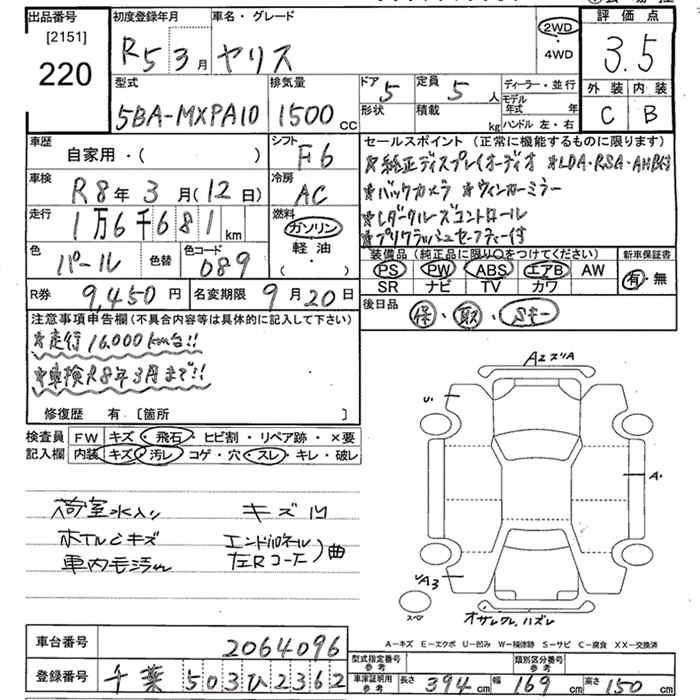 出品番号
[2151]
220
初度登録年月
R5 3月
車名・グレード
ヤリス
2WD
・
4WD
評価点
3.5
外装 内装
C B
型式
5BA-MXPA10
排気量
1500cc
ドア 5
形状
定員 5人
積載 kg
ディーラー・並行
モデル年式 年
ハンドル 左・右
車歴
自家用・( )
シフト
F6
セールスポイント (正常に機能するものに限ります)
★純正ディスプレイオーディオ ★LDA・RSA・AHB付
★バックカメラ ★ウィンカーミラー
★レーダークルーズコントロール
★プリクラッシュセーフティー付
車検
R8年 3月(12日)
冷房
AC
走行
1万6千681km
燃料
ガソリン
軽油
( ・ )
色
パール
色替
色コード
089
装備品 (純正品に限り○をつけてください)
PS PW ABS エアB AW
SR ナビ TV カワ
新車保証書
有・無
R券 9,450円
名変期限 9月20日
後日品
保・取・Sキー
注意事項申告欄 (不具合内容等は具体的に記入して下さい)
★走行16,000km台!!
★車検R8年3月まで!!
修復歴 有 [箇所 ]
検査員 FW キズ・飛石・ヒビ割・リペア跡・×要
記入欄 内装 キズ・汚レ・コゲ・穴・スレ・キレ・破レ
荷室水入り キズ凹
ホイルCキズ エンドパネル
車内毛汚れ 左Rコーナー )曲
AエズリA
U.
A.
UA3
スペア
オサレワレ.ハズレ
A=キズ E=エクボ U=凹み W=補修跡 S=サビ C=腐食 XX=交換済
車台番号 2064096
登録番号 千葉503ひ2362
型式指定番号 参考
類別区分番号 参考
車庫証明用 参考 長さ 394cm 幅 169cm 高さ 150cm